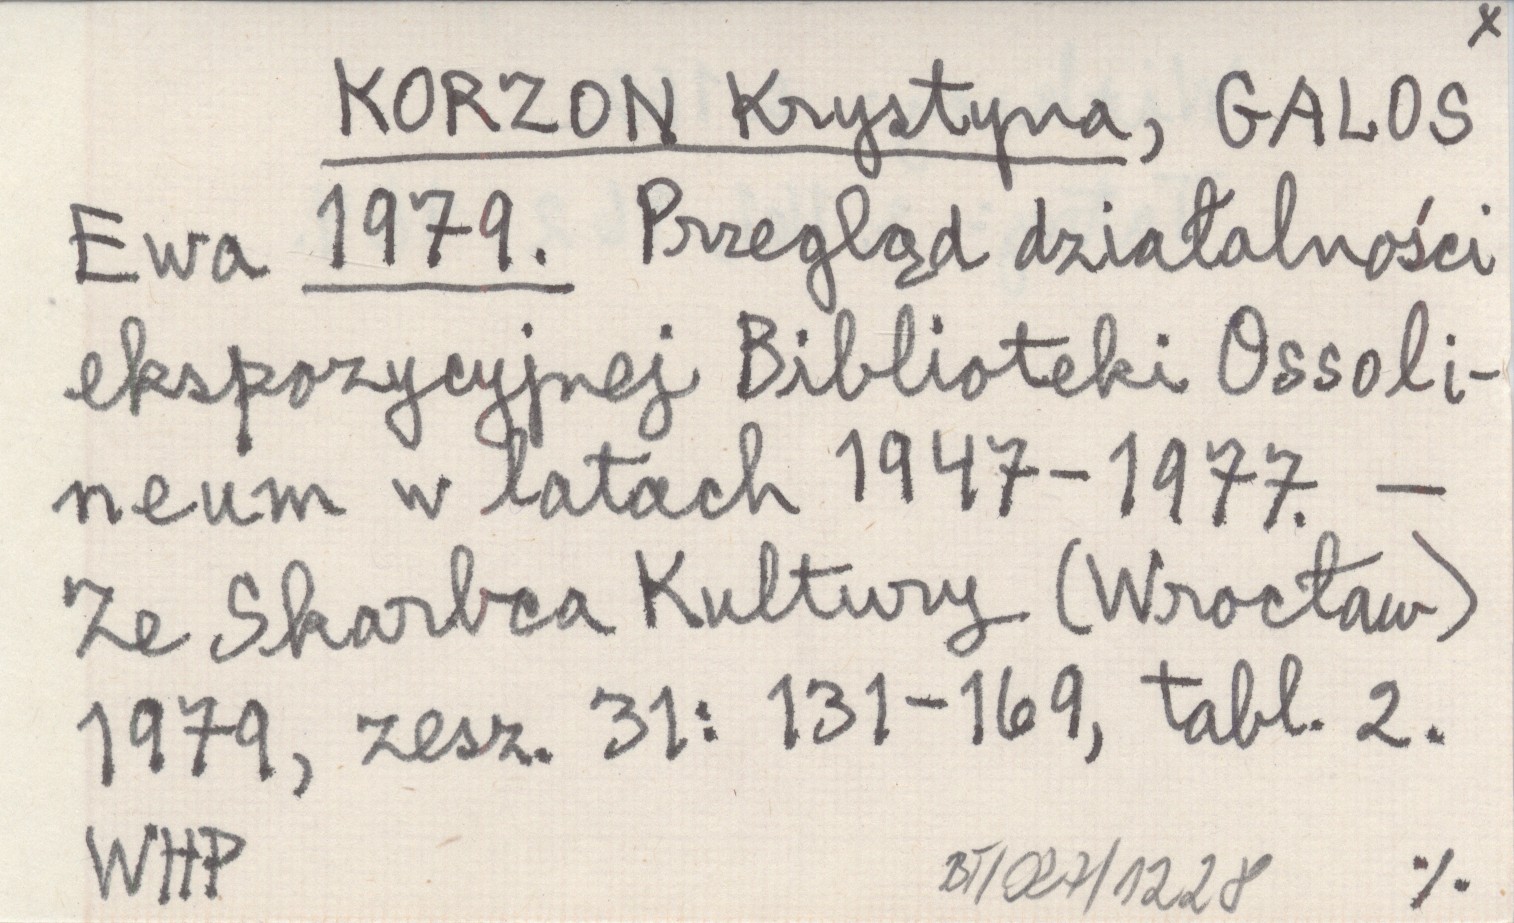 x
KORZON Krystyna, GALOS
Ewa 1979. Przegląd działalności
ekspozycyjnej Biblioteki Ossoli-
neum w latach 1947-1977. —
Ze Skarbca Kultury (Wrocław)
1979, zesz. 31: 131-169, tabl. 2.
WHP
BT/027/1228 ./.